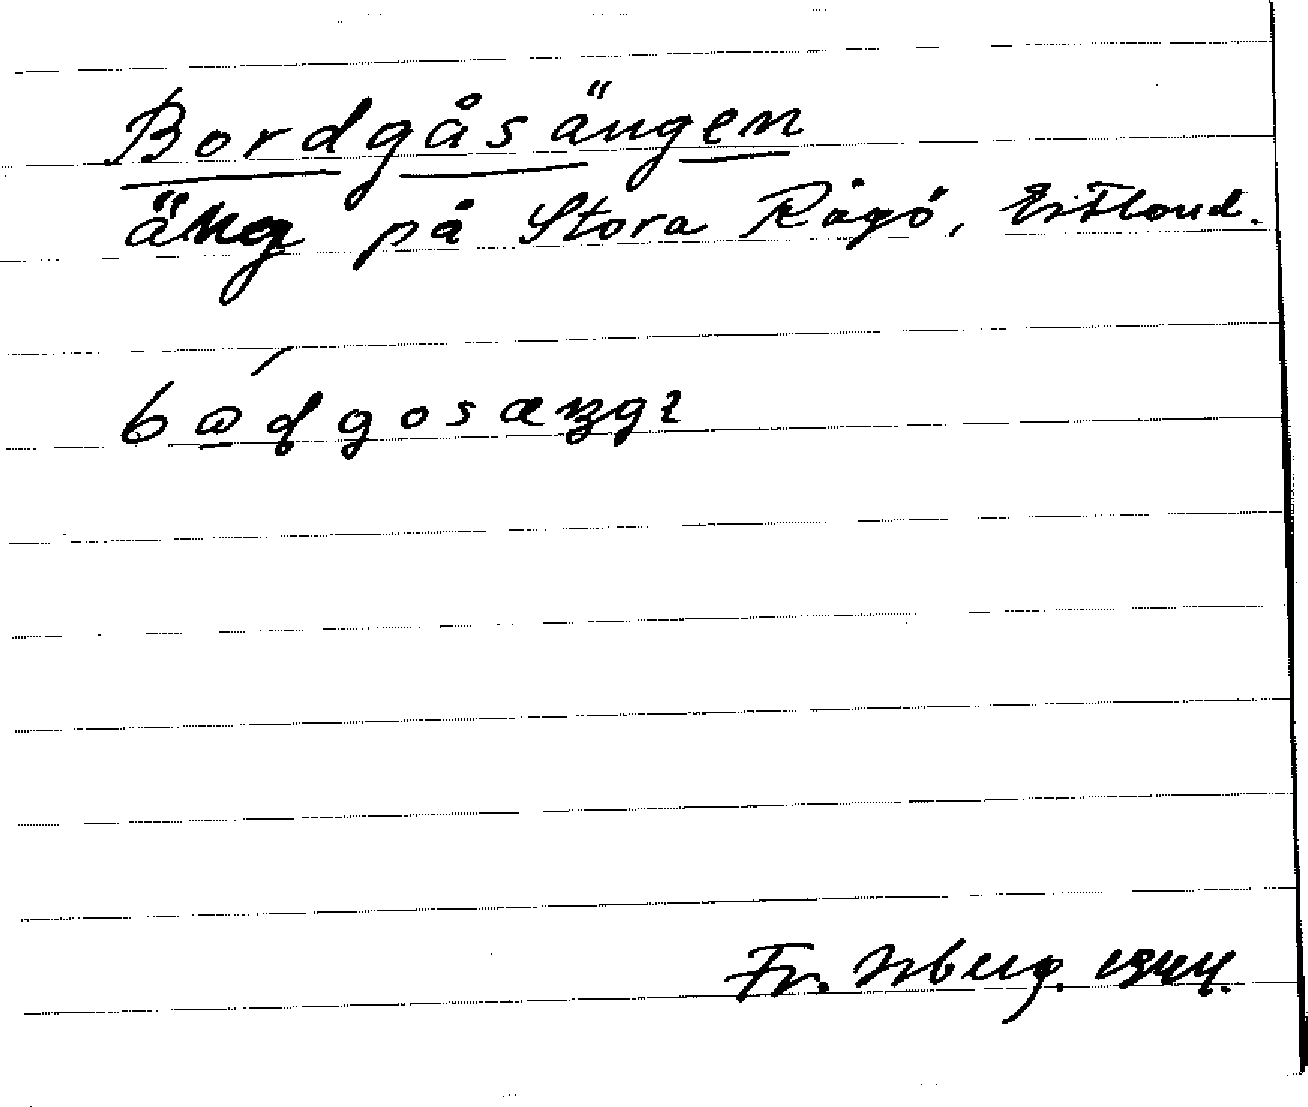 Bordgåsängen
äng på Stora Rågö, Estland.
Fr. Isberg. 1944.